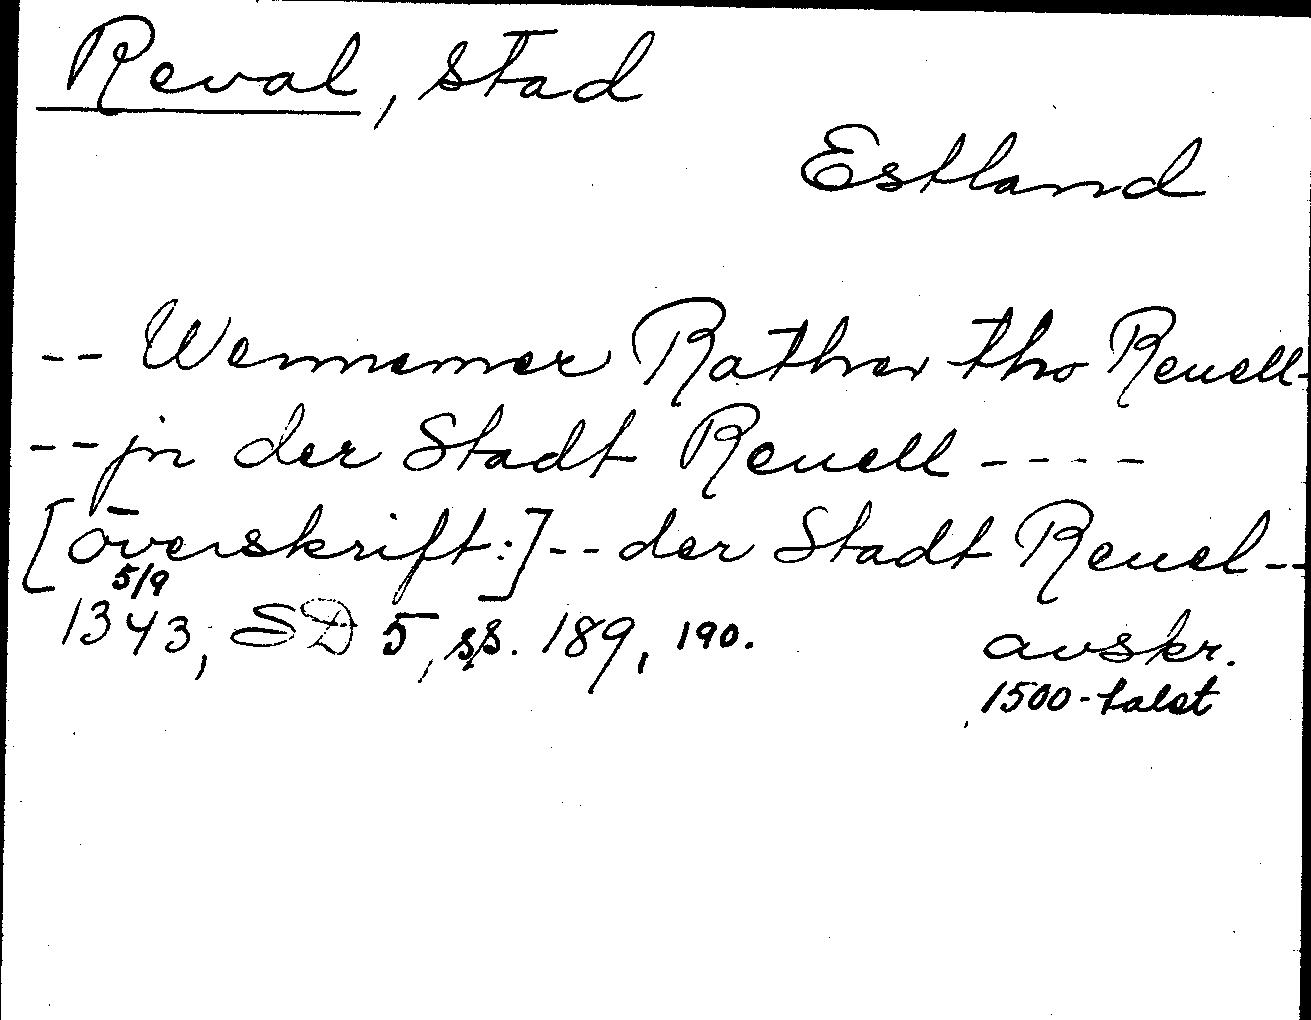 Reval, stad
Estland
-- Wennemer Rather tho Reuell-
-- jn der Stadt Reuell ----
[överskrift:] -- der Stadt Reuel --
5/9
1343, SD 5, ss. 189, 190.
avskr.
1500-talet